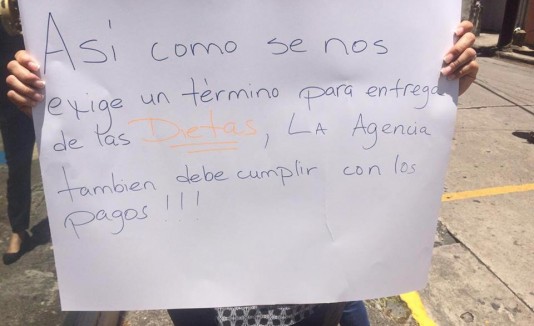 Así como se nos
exige un término para entrega
de las Dietas, LA Agencia
tambien debe cumplir con los
pagos!!!